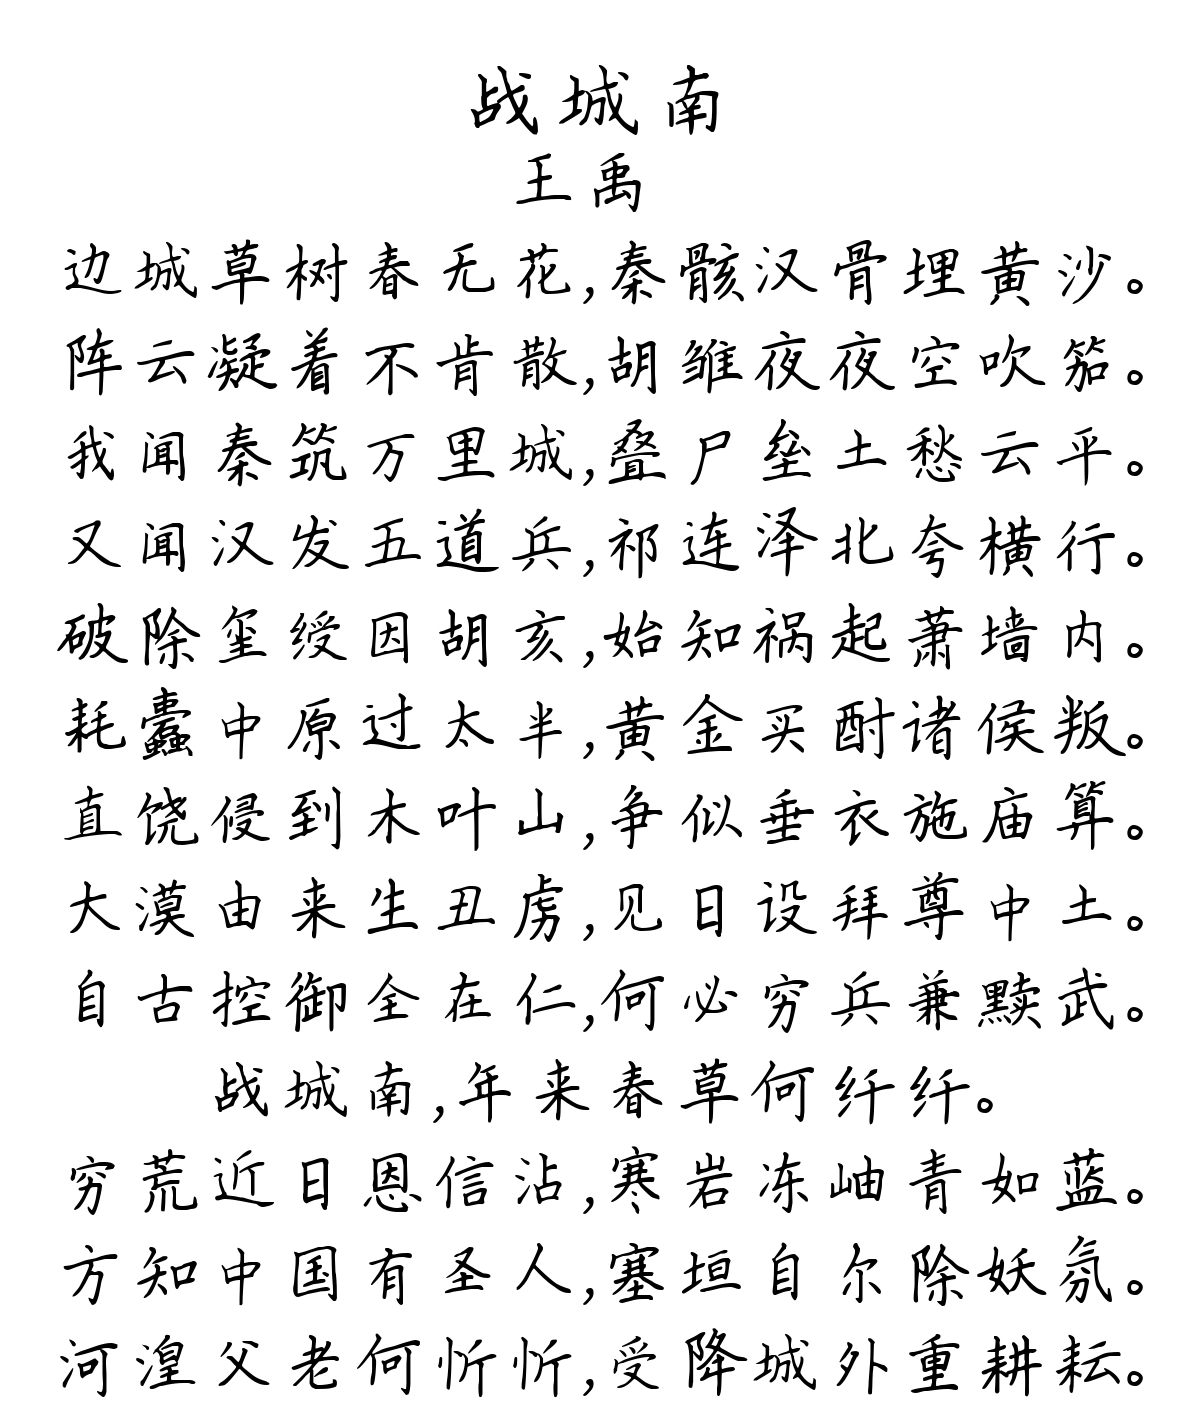 战城南
王禹
边城草树春无花,秦骸汉骨埋黄沙。
阵云凝着不肯散,胡雏夜夜空吹笳。
我闻秦筑万里城,叠尸垒土愁云平。
又闻汉发五道兵,祁连泽北夸横行。
破除玺绶因胡亥,始知祸起萧墙内。
耗蠹中原过太半,黄金买酎诸侯叛。
直饶侵到木叶山,争似垂衣施庙算。
大漠由来生丑虏,见日设拜尊中土。
自古控御全在仁,何必穷兵兼黩武。
战城南,年来春草何纤纤。
穷荒近日恩信沾,寒岩冻岫青如蓝。
方知中国有圣人,塞垣自尔除妖氛。
河湟父老何忻忻,受降城外重耕耘。